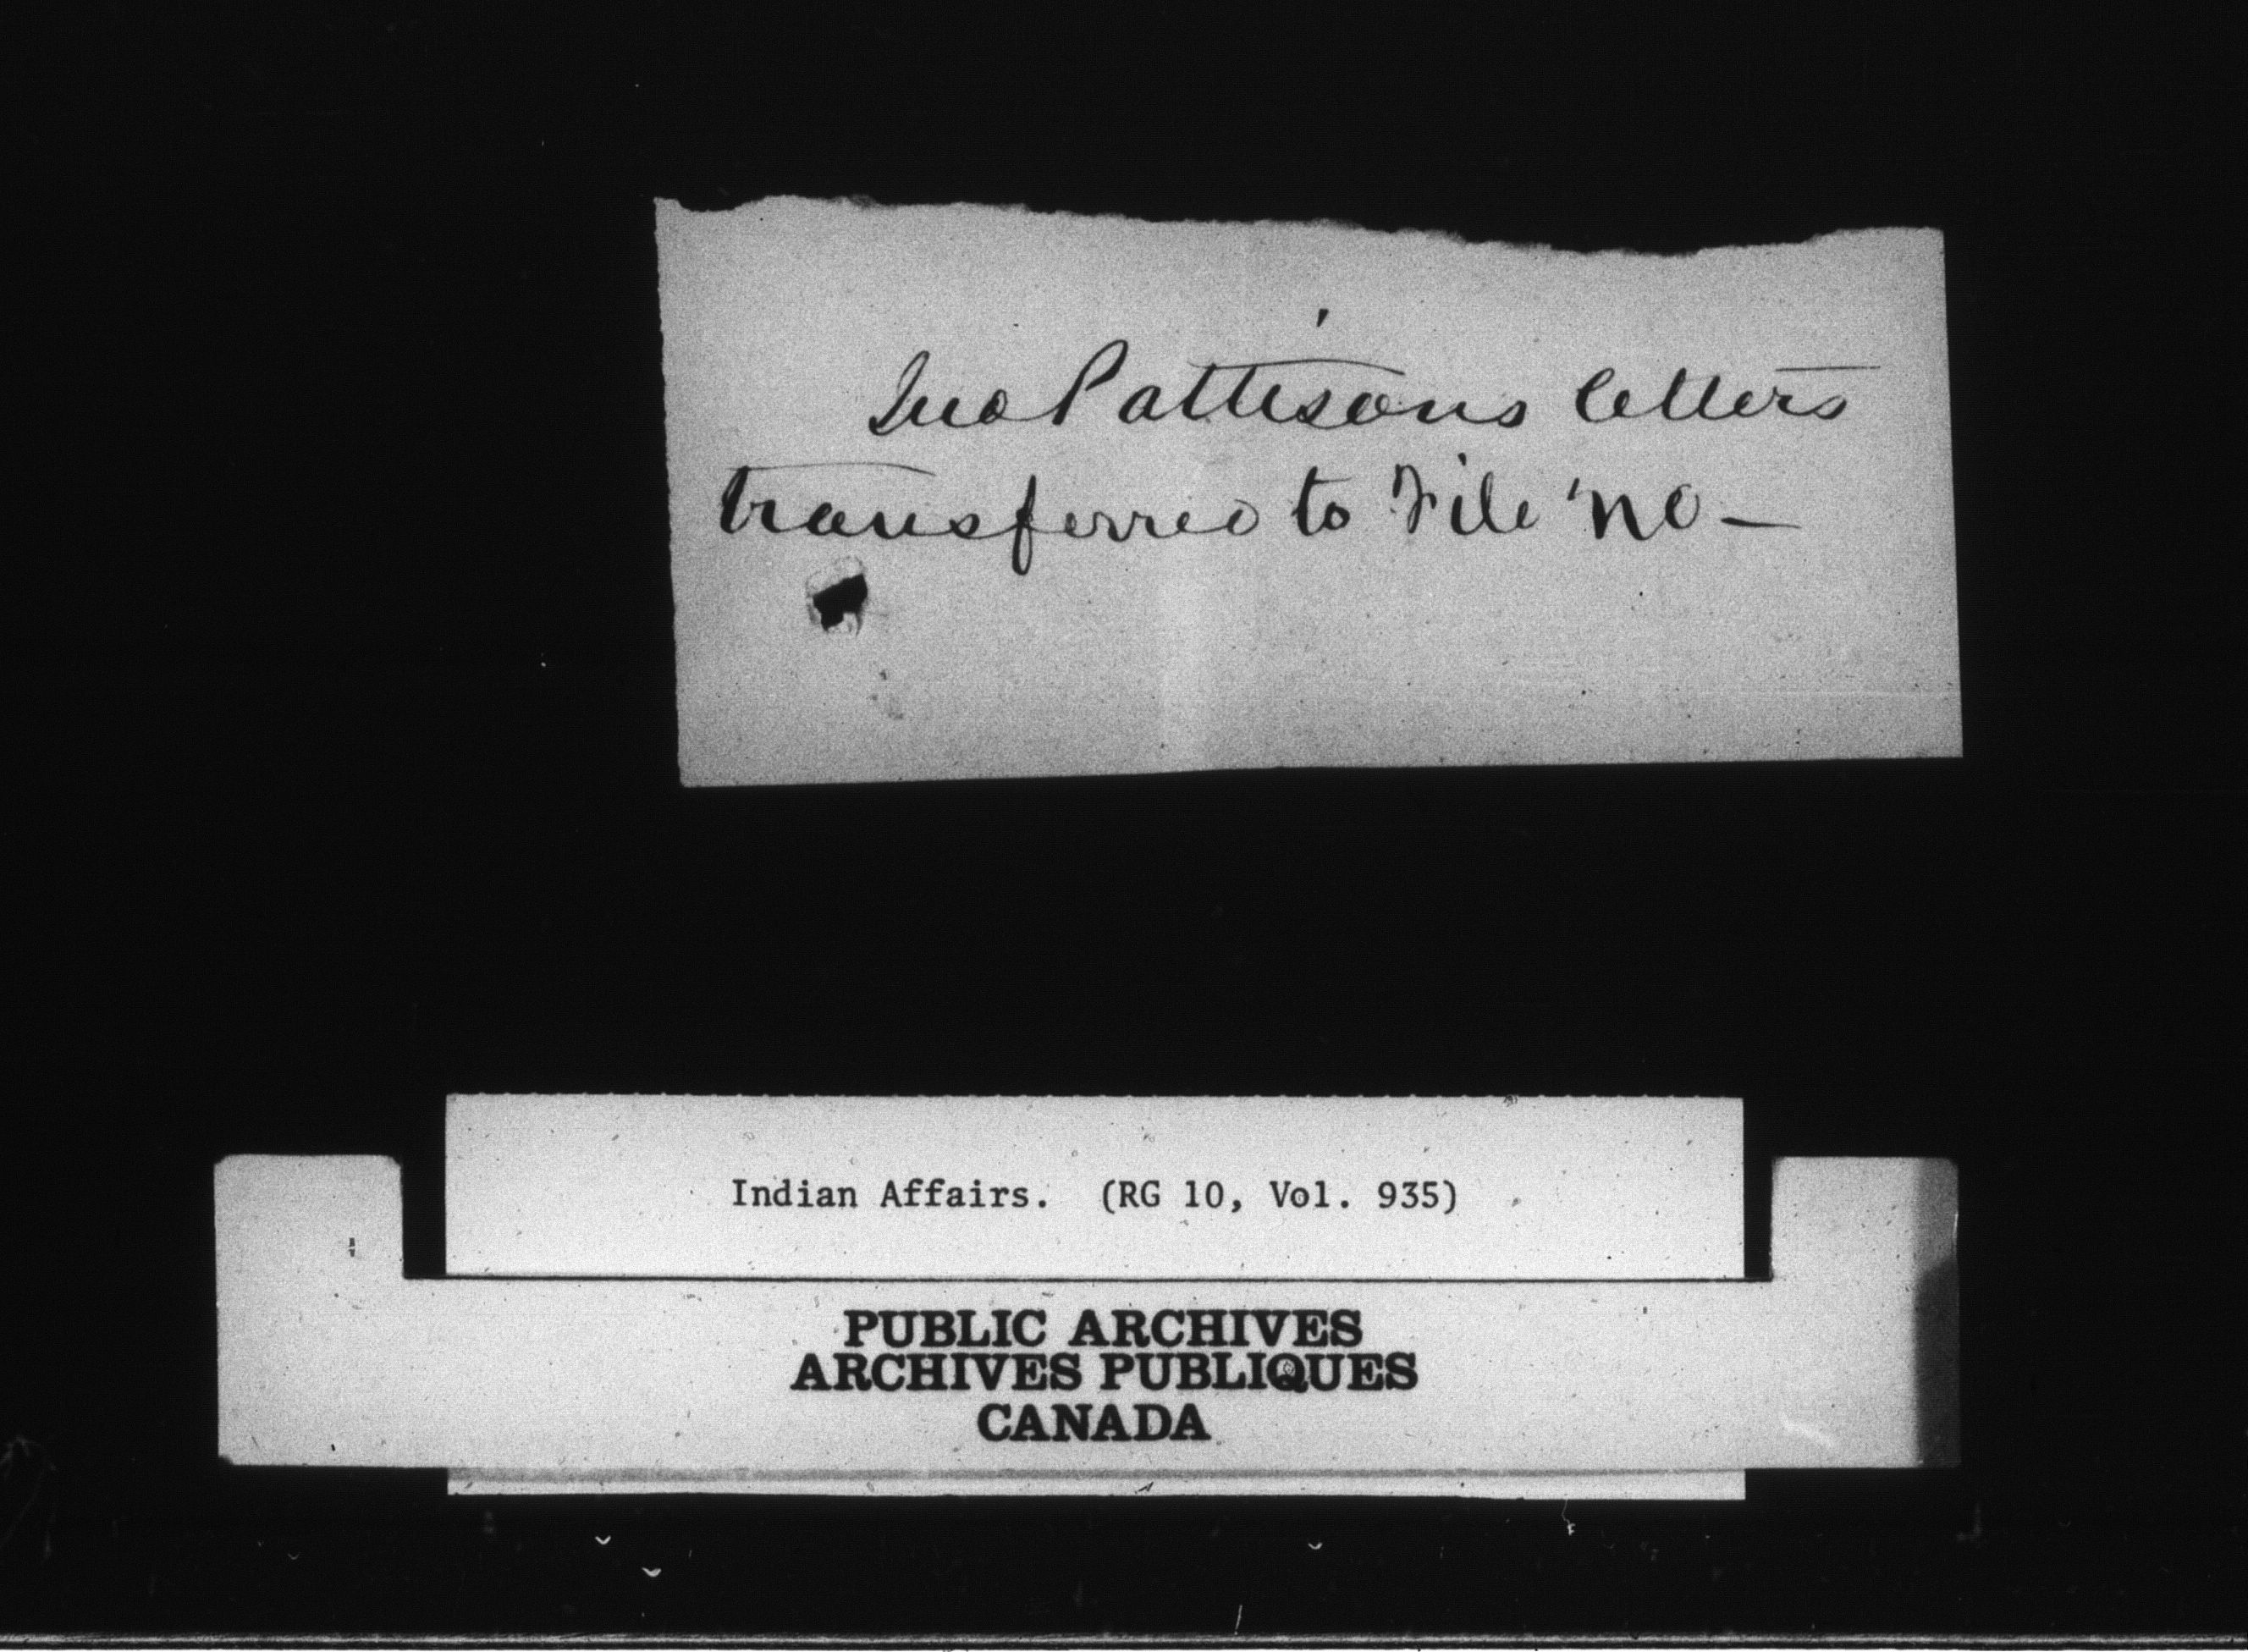 Jno Pattisons letters
transferred to File No —
Indian Affairs. (RG 10, Vol. 935)
PUBLIC ARCHIVES
ARCHIVES PUBLIQUES
CANADA